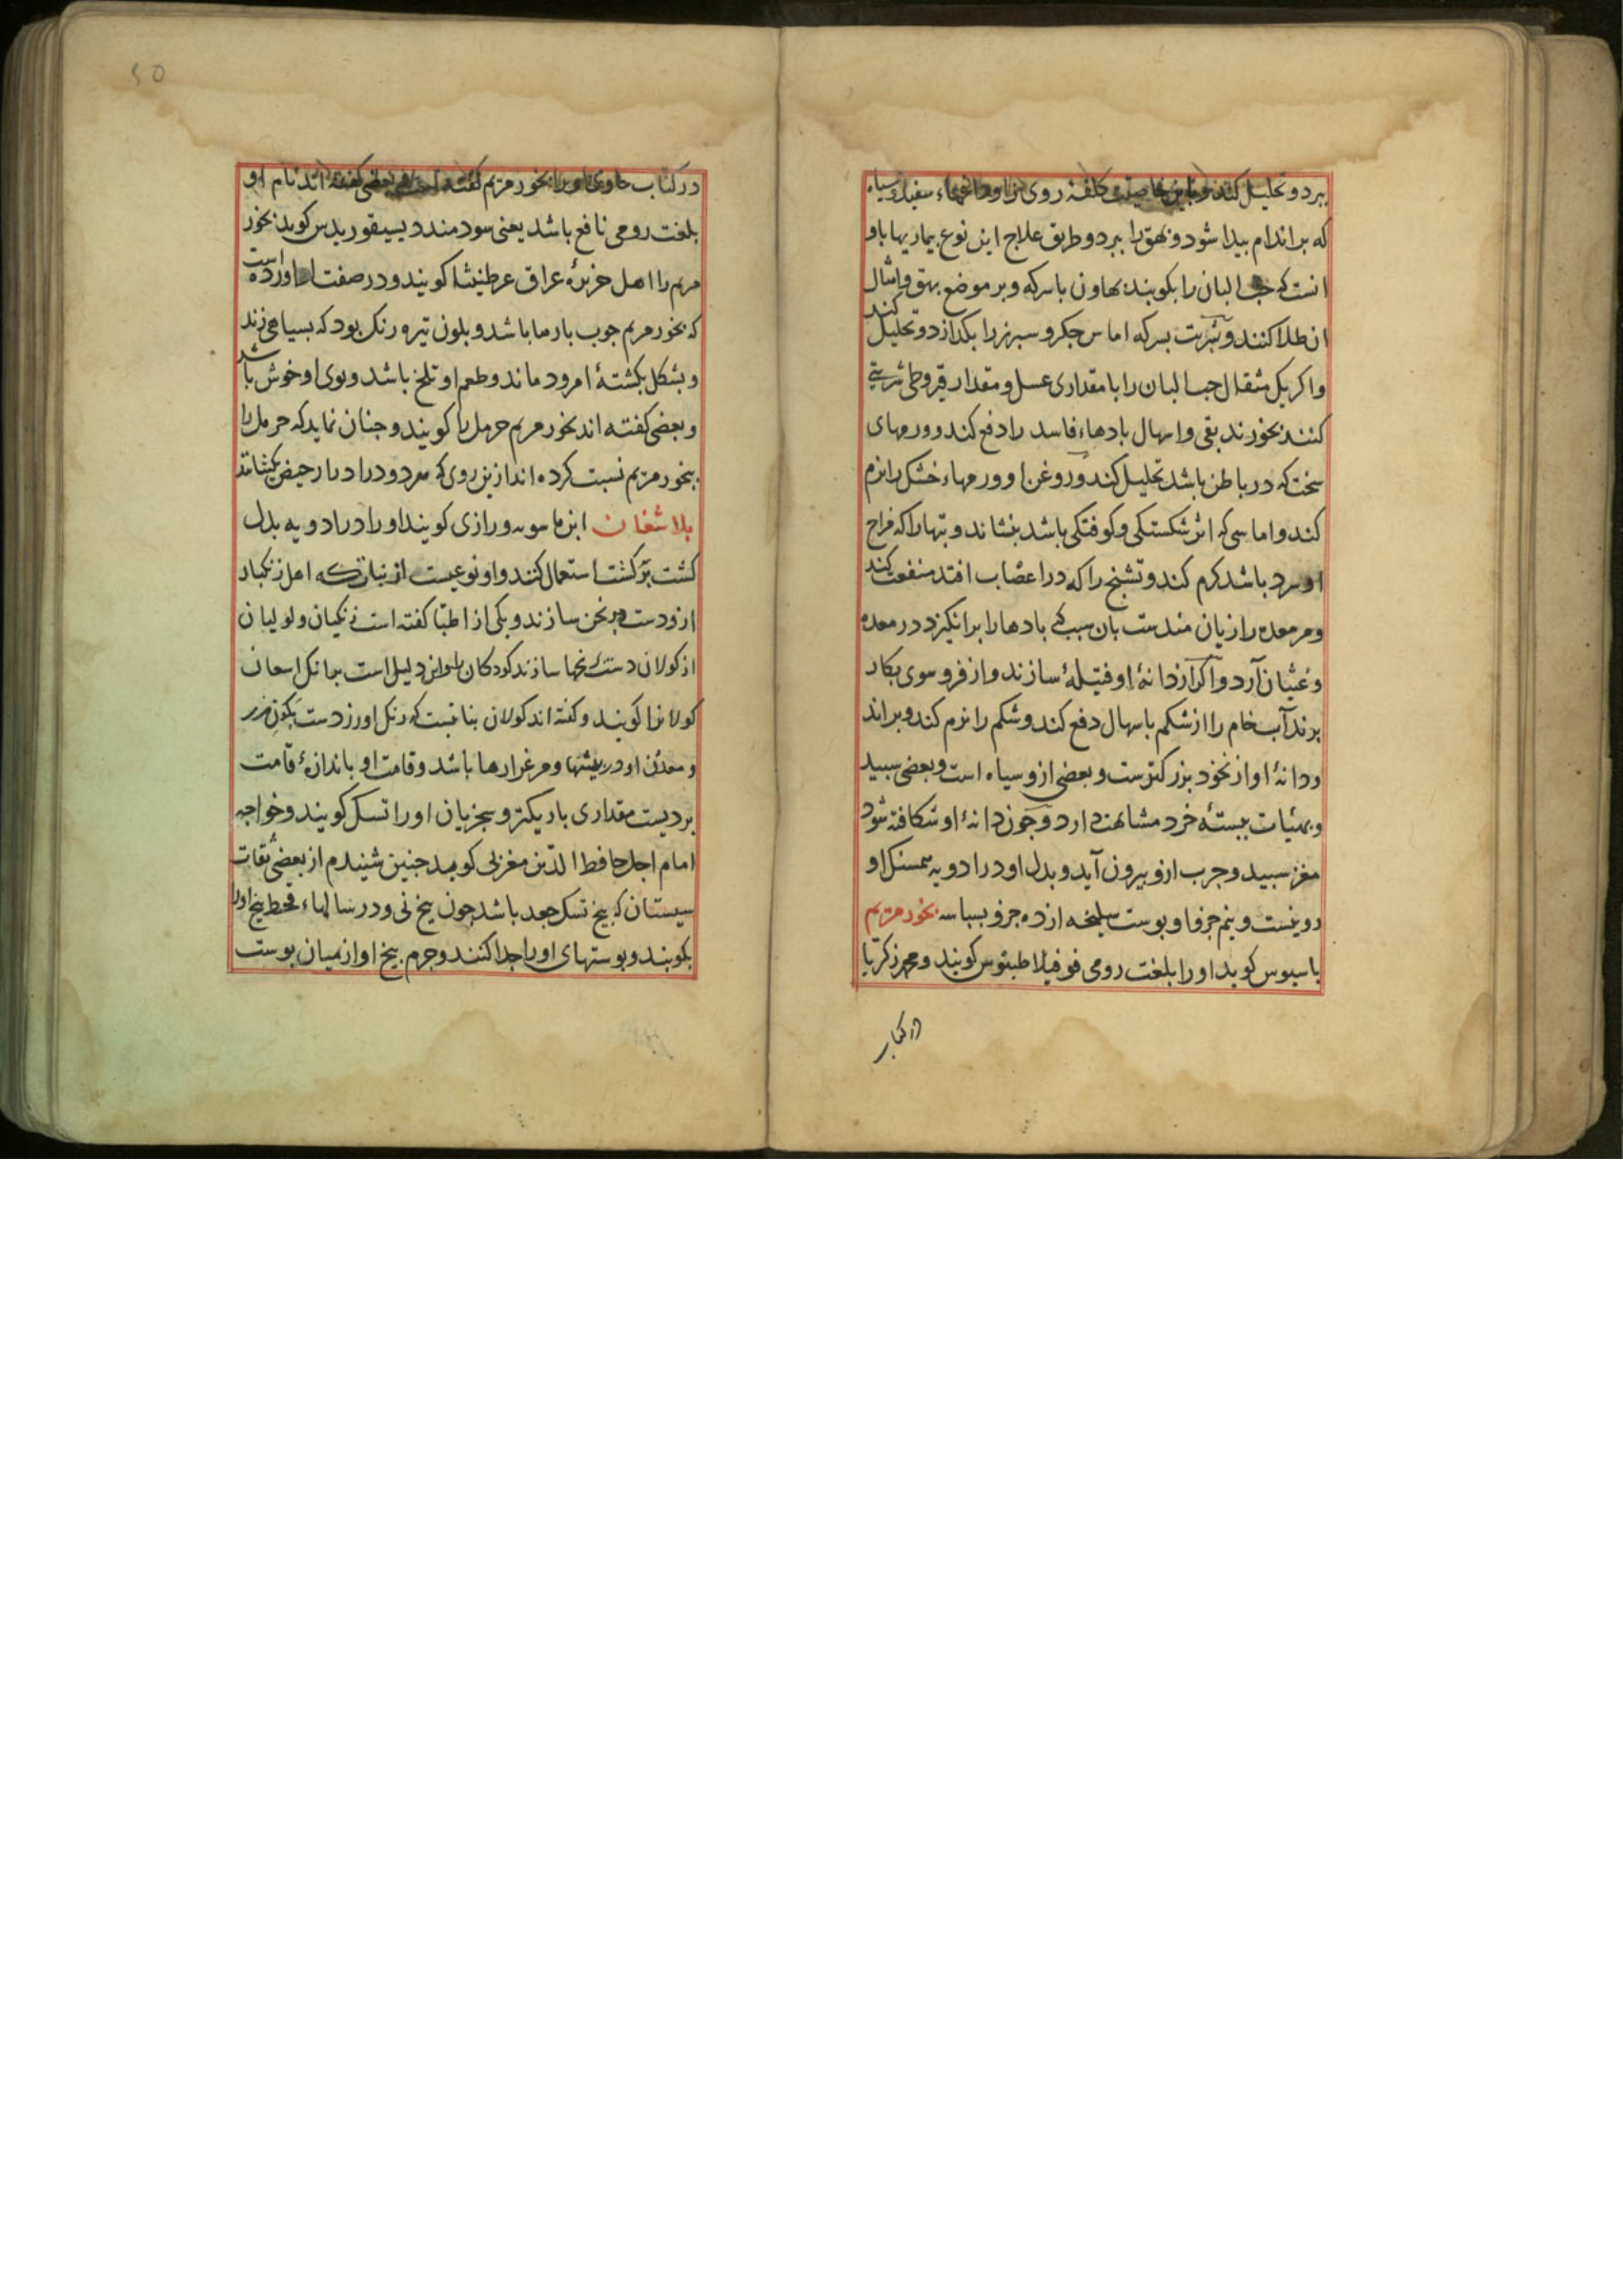 ببرد و تحلیل کند و باین خاصیت کلفهٔ روی را و داغهاء سفید و سیاه
که بر اندام بیدا شود و بهق را ببرد و طریق علاج این نوع بیماریها باو
انست که حب البان را بکوبند بهاون با سرکه و بر موضع بهق و امثال
ان طلا کنند و شربت بسرکه اماس جکر و سبرز را بکدازد و تحلیل کند
واکر یک مثقال حب البان را با مقداری عسل و مقدار قیروطی شربتی
کنند بخورند بقی و اسهال بادهاء فاسد را دفع کند و ورمهای
سخت که در باطن باشد تحلیل کند و روغن او ورمهاء خشک را نرم
کند و اماسی که اثر شکستکی و کوفتکی باشد بنشاند و تبها را که مزاج
او سرد باشد کرم کند و تشنج را که در اعصاب افتد منفعت کند
و مر معده را زیان مندست بان سبب که بادها را برانکیزد در معده
و غثیان آرد و اکر از دانهٔ او فتیلهٔ سازند و از فرو سوی بکار
برند آب خام را از شکم باسهال دفع کند و شکم را نرم کند و براند
ودانهٔ او از نخود بزرکترست و بعضی ازو سیاه است و بعضی سبید
و بهیئات بستهٔ خرد مشابهت دارد و جون دانهٔ او شکافته شود
مغز سبید و جرب ازو بیرون آید و بدل او در ادویه همسنک او
روینست و نیم جزؤ او بوست سلیخه از ده جزو بسباسه بخور مریم
باسیوس کوید او را بلغت رومی فوفیلاطینوس کویند و محمد زکریا
در کتاب
در کتاب حاوی او را بخور مریم کفته است و بعضی کفته اند نام او
بلغت رومی نافع باشد یعنی سودمند دیسیقوریدس کوید بخور
مریم را اهل جزیرهٔ عراق عرطنیثا کویند و در صفت او اورده است
که بخور مریم جوب بارها باشد و بلون تیره رنک بود که بسیاهی زند
و بشکل بکشتهٔ امرود ماند و طعم او تلخ باشد و بوی او خوش باشد
و بعضی کفته اند بخور مریم حرمل را کویند و جنان نماید که حرمل را
ببخور مریم نسبت کرده اند ازین روی که هر دو درادرار حیض بکشانند
بلاشغان ابن ماسویه و رازی کویند او را در ادویه بدل
کشت برکشت استعمال کنند و او نوعیست از نباتی که اهل زنکبار
ازو دست برنجن سازند و یکی از اطبا کفته است زنکیان و لولیان
از کولان دست برنجها سازند کودکان را و این دلیل است برانک
کولان را کویند و کفته اند کولان نباتیست که رنک او زردست
و معدن او در بیشها و مرغزارها باشد و قامت او باندازهٔ قامت
بردیست مقداری باریکتر و سجزیان او را تسک کویند و خواجه
امام اجل حافظ الدین مغزلی کوید جنین شنیدم از بعضی ثقات
سیستان که بیخ تسک جعد باشد جون بیخ نی و در سالهاء قحط بیخ او را
بکوبند و بوستهای او را جدا کنند و جرم بیخ او از میان بوست